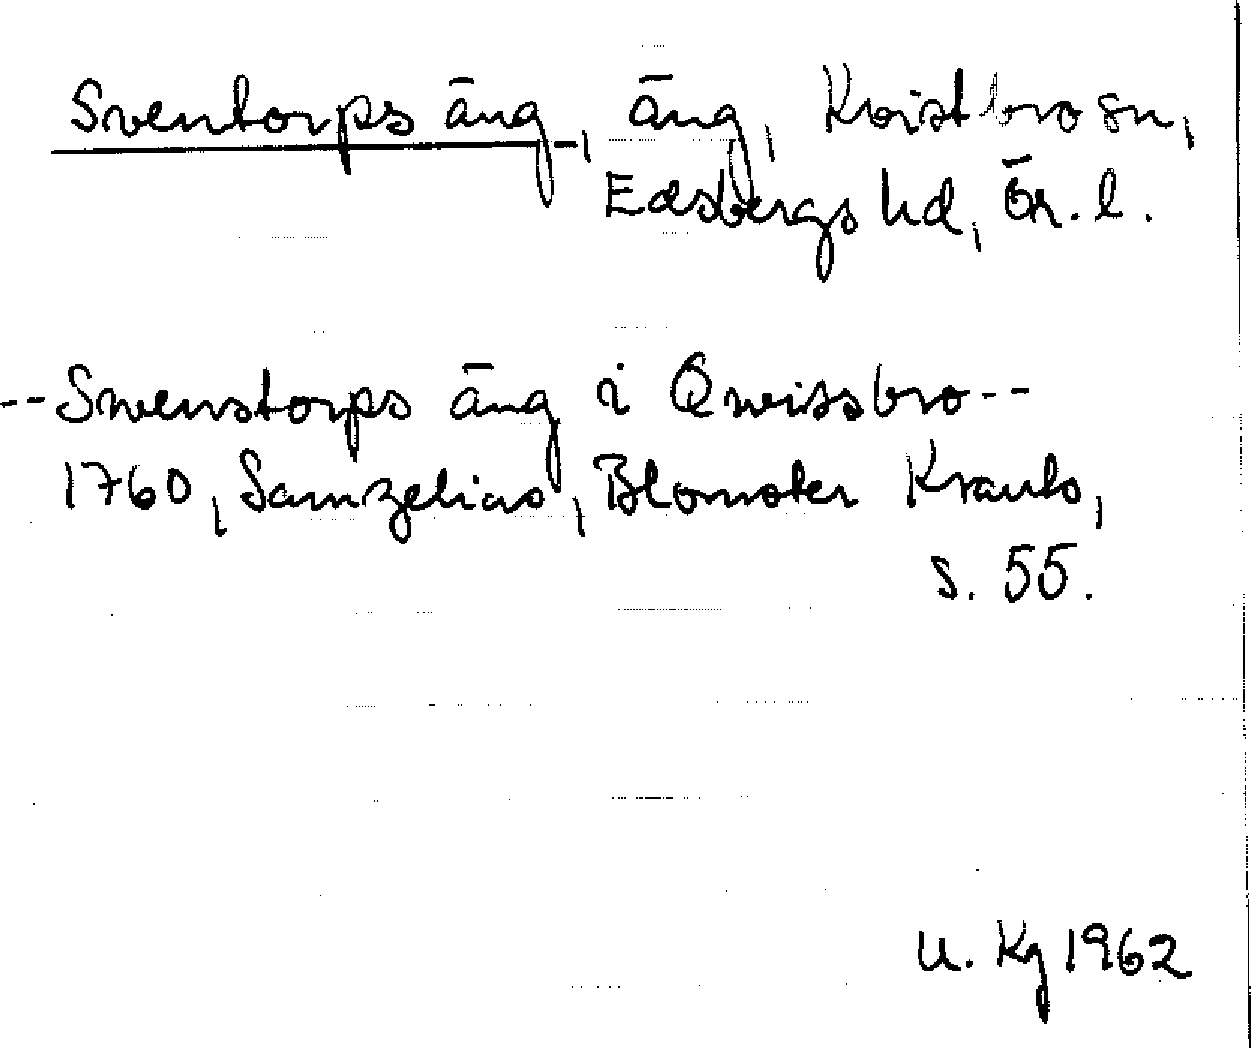 Sventorps äng, äng, Kvistbro sn,
Edsbergs hd, Ör. l.
-- Swenstorps äng i Qweissbro --
1760, Samzelius, Blomster Krants,
s. 55.
U. Kg 1962